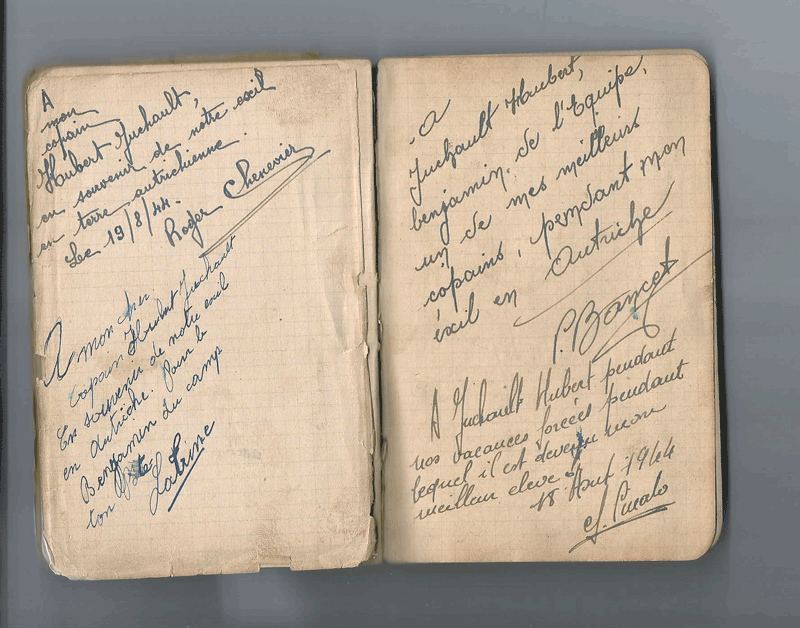 A
mon
copain
Hubert Juchault,
en souvenir de notre exil
en terre autrichienne.
Le 19/8/44.
Roger Chenevier
A mon cher
Copain Hubert Juchault
En souvenir de notre exil
en Autriche. Pour le
Benjamin du camp
ton Pote
Latrine
A
Juchault Hubert,
benjamin de l'Equipe,
un de mes meilleurs
copains, pendant mon
éxil en Autriche
P. Bancet
A Juchault Hubert pendant
nos vacances forcées pendant
lequel il est devenu mon
meilleur eleve
18 Aout 1944